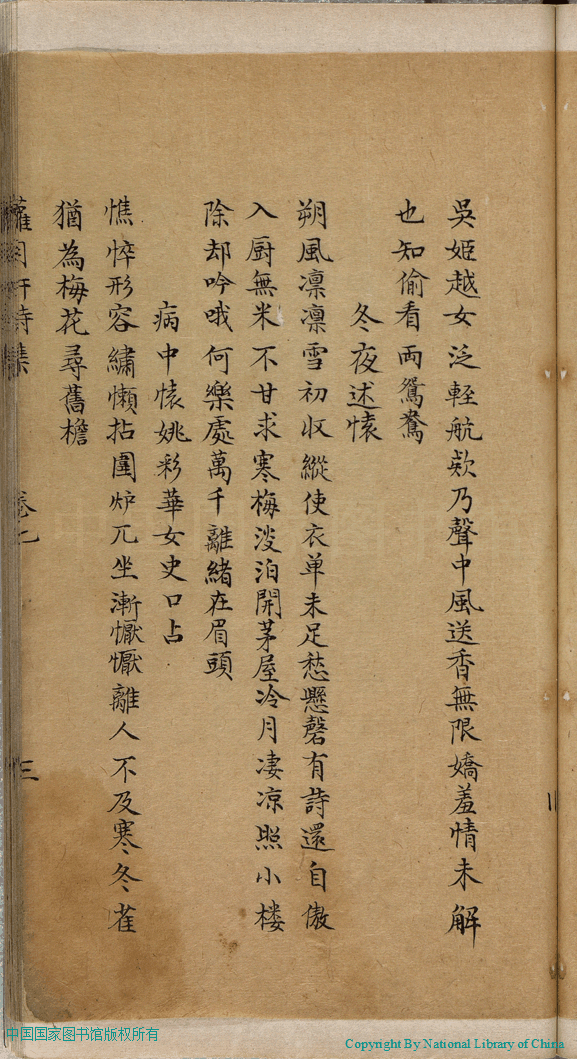 吳姬越女泛輕航欵乃聲中風送香無限嬌羞情未解
也知偷看兩鴛鴦
冬夜述懐
朔風凛凛雪初收縱使衣单未足愁懸磬有詩還自傲
入厨無米不甘求寒梅淡泊開茅屋冷月凄凉照小楼
除却吟哦何樂處萬千離緒在眉頭
病中懐姚彩華女史口占
憔悴形容繡懒拈圍炉兀坐漸懨懨離人不及寒冬雀
猶為梅花尋舊檐
卷七
三
中国国家图书馆版权所有
Copyright By National Library of China